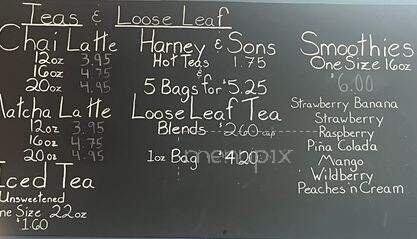 Teas & Loose Leaf
Chai Latte
12oz 3.95
16oz 4.75
20oz 4.95
Matcha Latte
12oz 3.95
16oz 4.75
20oz 4.95
Iced Tea
Unsweetened
One Size 22oz
$1.60
Harney & Sons
Hot Teas 1.75
&
5 Bags for $5.25
Loose Leaf Tea
Blends $2.60 cup
1oz Bag $4.20
menupix
Smoothies
One Size 16oz
$6.00
Strawberry Banana
Strawberry
Raspberry
Piña Colada
Mango
Wildberry
Peaches 'n Cream